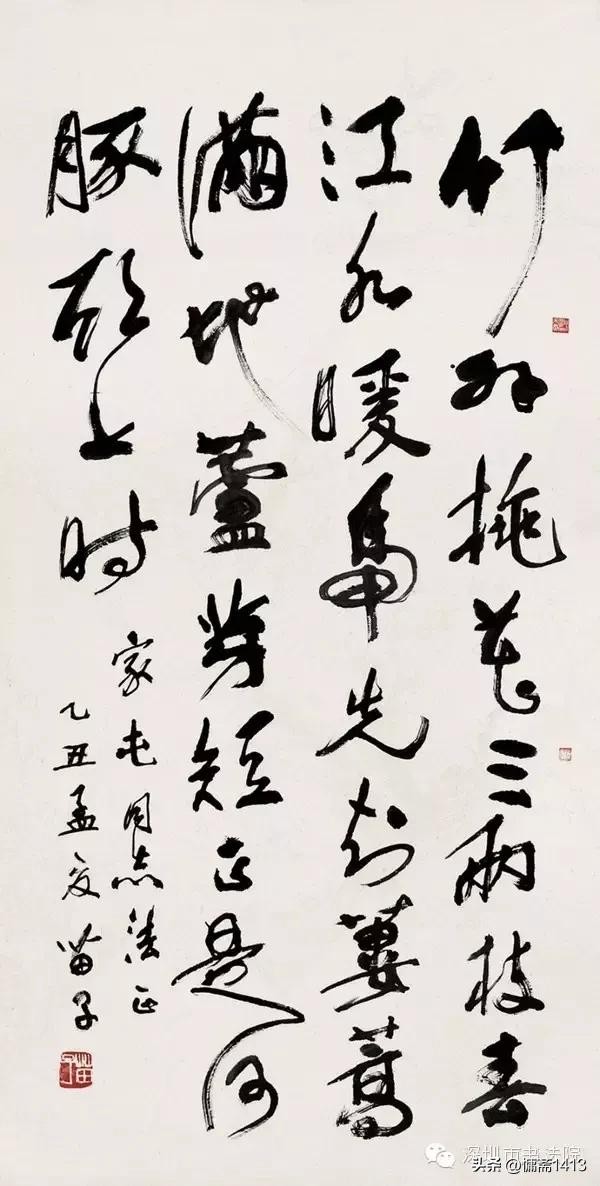 竹外桃花三兩枝春
江水暖鴨先知蔞蒿
滿地蘆芽短正是河
豚欲上時
家屯同志正
乙丑孟夏苗子
苗子
深圳市书法院
头条 @慵斋1413